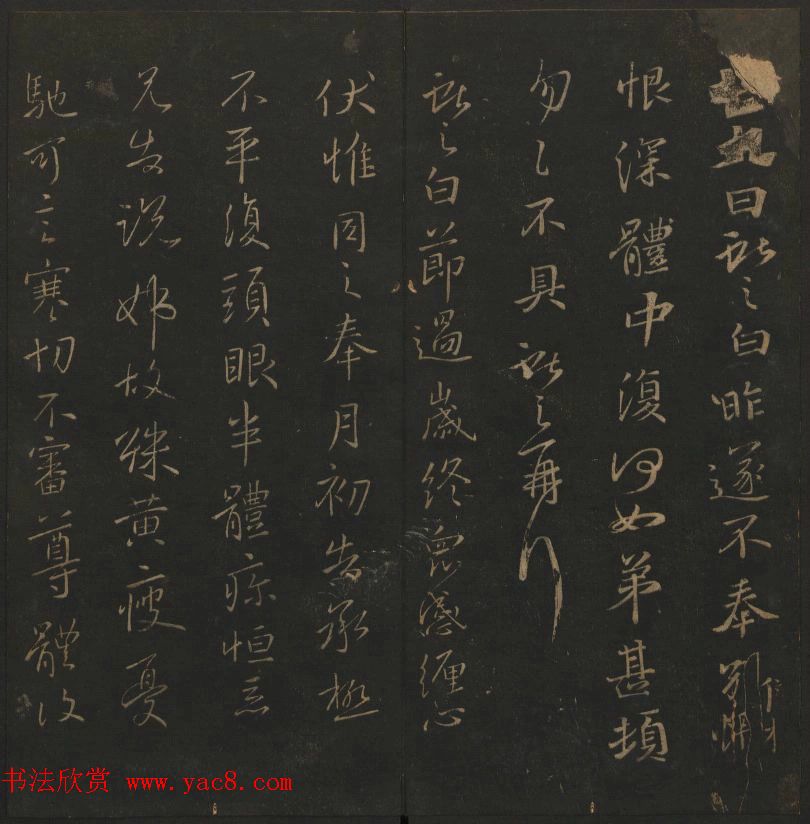 廿九日獻之白昨遂不奉別悵
恨深體中復何如弟甚頓
勿勿不具獻之再拜
獻之白節過歲終眾感纏心
伏惟同之奉月初告承極
不平復頭眼半體疼恒惡
兄告說姊故殊黃瘦憂
馳可言寒切不審尊體復
书法欣赏 www.yac8.com